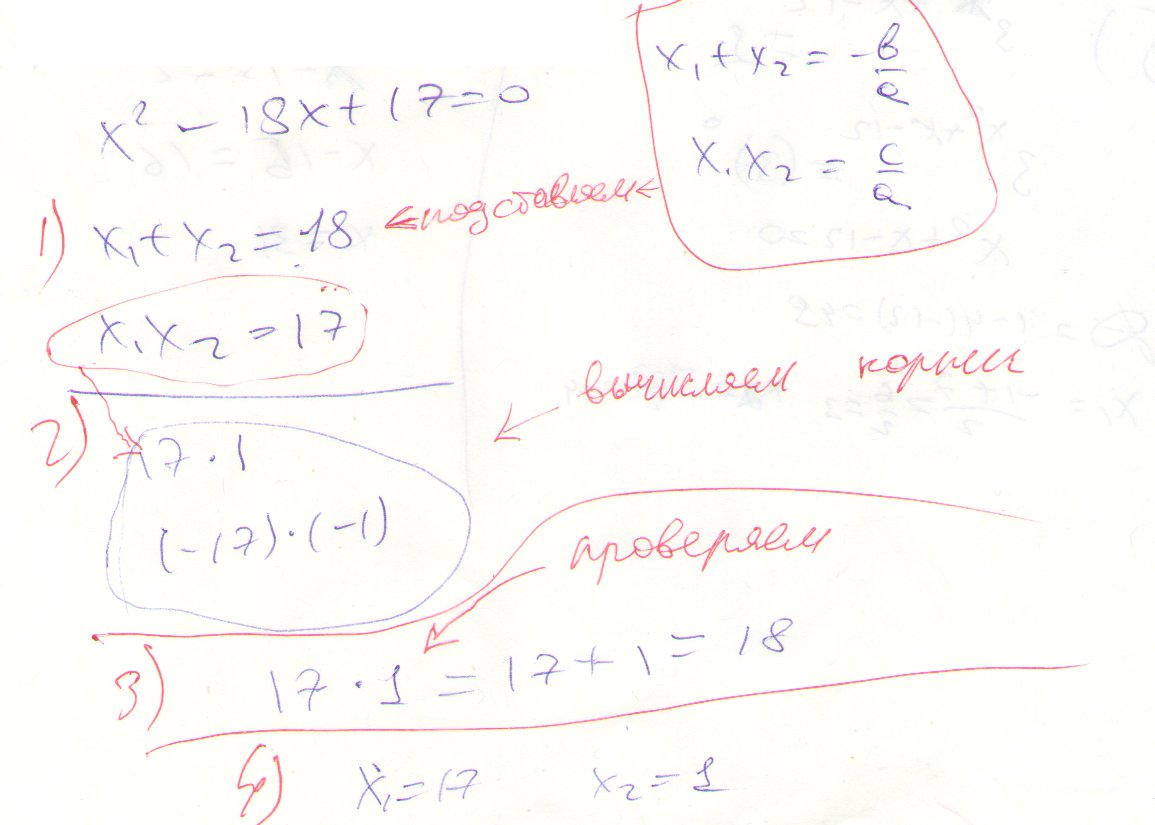 x² - 18x + 17 = 0
x₁ + x₂ = -в/a
x₁ x₂ = c/a
1) x₁ + x₂ = 18 ← подставляем ←
x₁ x₂ = 17
вычисляем корни
2) 17 · 1
(-17) · (-1)
проверяем
3) 17 · 1 = 17 + 1 = 18
4) x₁ = 17 x₂ = 1